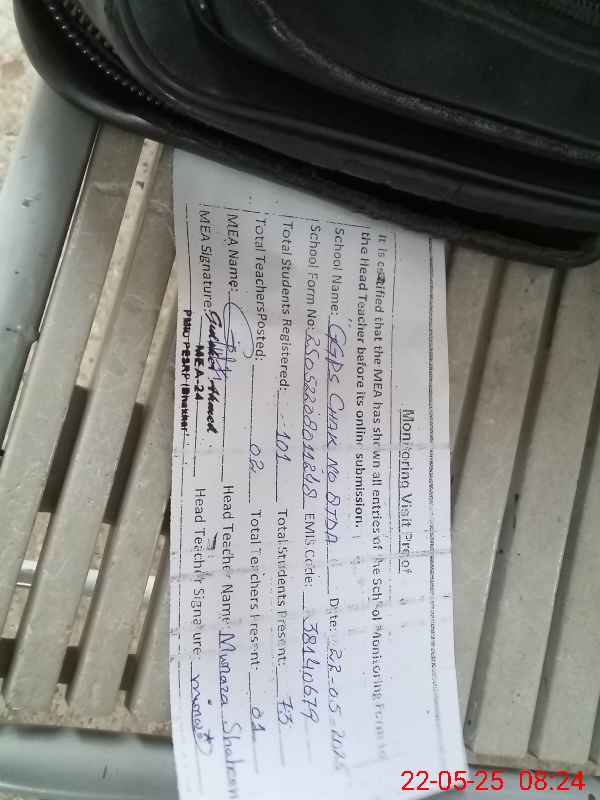 Monitoring Visit Proof
It is certified that the MEA has shown all entries of the School Monitoring Form to
the Head Teacher before its online submission.
School Name: GGPS CHAK NO 8TDA Date: 22-05-2025
School Form No: 25052208011248 EMIS Code: 38140679
Total Students Registered: 101 Total Students Present: 73
Total Teachers Posted: 02 Total Teachers Present: 01
MEA Name: Head Teacher Name: Munaza Shaheen
MEA Signature: Ahmed Head Teacher Signature:
MEA-24
PMIU PESRP (Bhakkar)
22-05-25 08:24